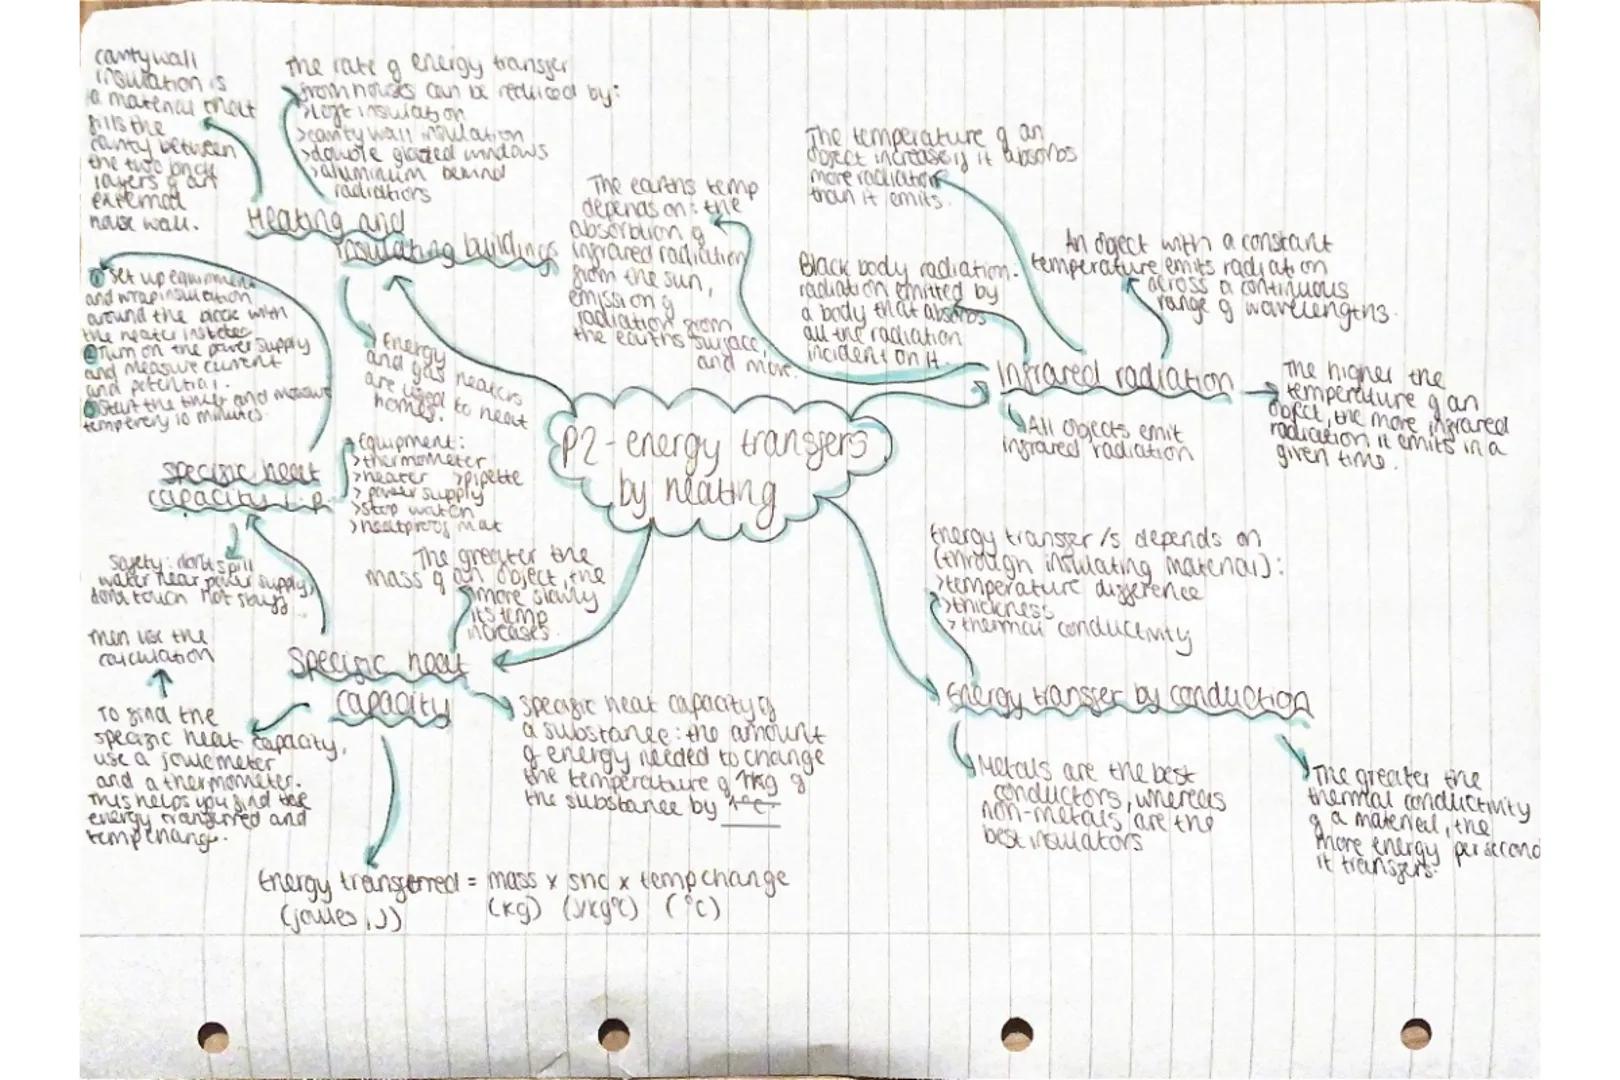 P2-energy transfers
by heating
Heating and
insulating buildings
cavity wall
insulation is
a material that
fills the
cavity between
the two brick
layers of an
external
house wall.
The rate of energy transfer
from houses can be reduced by:
>loft insulation
>cavity wall insulation
>double glazed windows
>aluminium behind
radiators
Energy
and gas heaters
are used to heat
homes.
Infrared radiation
The earths temp
depends on: the
absorbtion of
infrared radiation
from the sun,
emission of
radiation from
the earths surface,
and more.
Black body radiation:
radiation emitted by
a body that absorbs
all the radiation
incident on it.
The temperature of an
object increases if it absorbs
more radiation
than it emits.
An object with a constant
temperature emits radiation
across a continuous
range of wavelengths.
The higher the
temperature of an
object, the more infrared
radiation it emits in a
given time.
All objects emit
infrared radiation
Energy transfer by conduction
Energy transfer /s depends on
(through insulating material):
>temperature difference
>thickness
>thermal conductivity
Metals are the best
conductors, whereas
non-metals are the
best insulators
The greater the
thermal conductivity
of a material, the
more energy per second
it transfers.
Specific heat
capacity
The greater the
mass of an object, the
more slowly
its temp
increases.
specific heat capacity of
a substance: the amount
of energy needed to change
the temperature of 1kg of
the substance by 1°C.
Energy transferred = mass x shc x temp change
(joules, J) (kg) (J/kg°C) (°C)
To find the
specific heat capacity,
use a joulemeter
and a thermometer.
This helps you find the
energy transferred and
temp change.
Then use the
calculation
specific heat
capacity r.p.
① Set up equipment
and wrap insulation
around the block with
the heater
② Turn on the power supply
and measure current
and potential.
③ Start the timer and measure
temp every 10 minutes.
Equipment:
>thermometer
>heater >pipette
> power supply
>stop watch
>heatproof mat
Safety: don't spill
water near power supply,
dont touch hot stuff